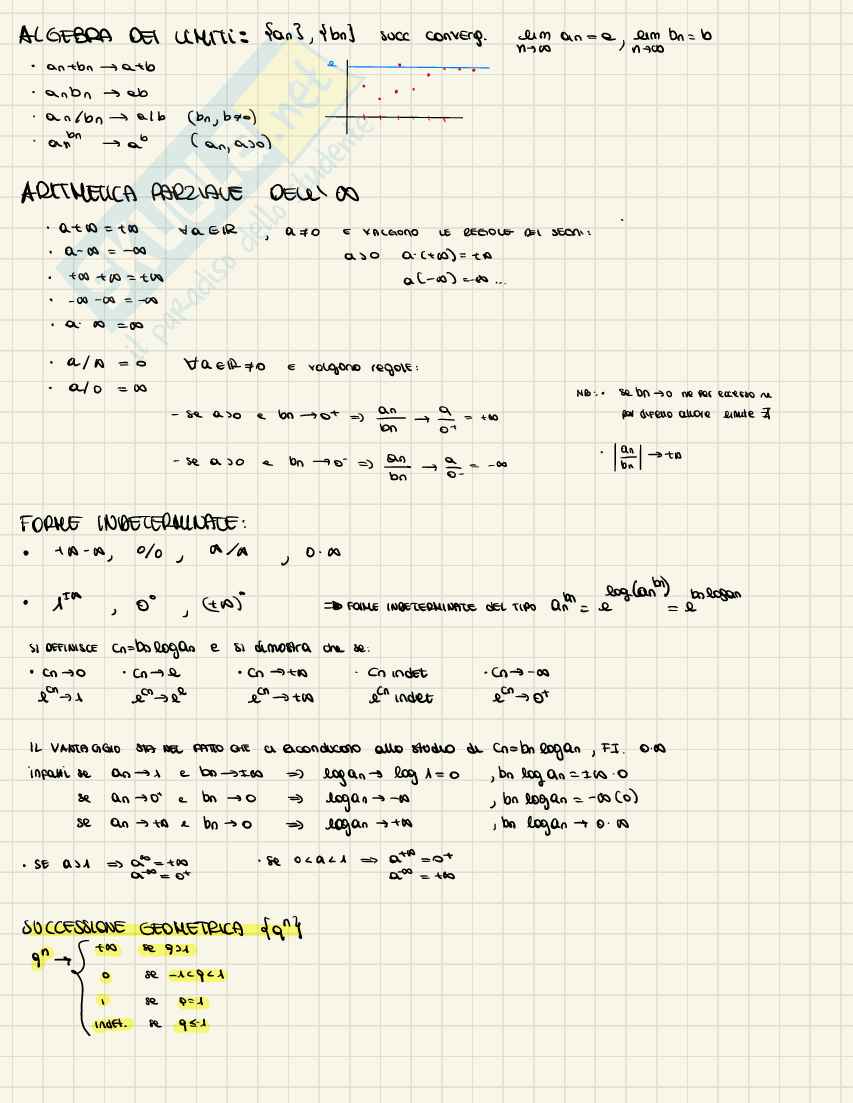 ALGEBRA DEI LIMITI: {an}, {bn} succ converg. lim n→∞ an = a, lim n→∞ bn = b
· an+bn → a+b
· an bn → ab
· an/bn → a/b (bn, b≠0)
· an^bn → a^b (an, a>0)
SKUOLA.net
il paradiso dello studente
ARITMETICA PARZIALE DELL'∞
· a+∞ = +∞ ∀a∈ℝ, a≠0 E VALGONO LE REGOLE DEI SEGNI:
· a-∞ = -∞ a>0 a·(+∞) = +∞
· +∞+∞ = +∞ a(-∞) = -∞ ...
· -∞-∞ = -∞
· a·∞ = ∞
· a/∞ = 0 ∀a∈ℝ≠0 E valgono regole:
· a/0 = ∞
NB: · se bn→0 ne per eccesso ne
per difetto allora limite ∄
- se a>0 e bn→0⁺ => an/bn → a/0⁺ = +∞
· |an/bn| → +∞
- se a>0 e bn→0⁻ => an/bn → a/0⁻ = -∞
FORME INDETERMINATE:
• +∞-∞, 0/0, ∞/∞, 0·∞
• 1^±∞, 0⁰, (+∞)⁰ => FORME INDETERMINATE DEL TIPO an^bn = e^log(an^bn) = e^bn log an
SI DEFINISCE Cn=bn log an e si dimostra che se:
· Cn→0 · Cn→l · Cn→+∞ · Cn indet · Cn→-∞
e^Cn→1 e^Cn→e^l e^Cn→+∞ e^Cn indet e^Cn→0⁺
IL VANTAGGIO STA NEL FATTO CHE ci riconducono allo studio di Cn=bn log an, F.I. 0·∞
infatti se an→1 e bn→±∞ => log an→ log 1=0, bn log an = ±∞·0
se an→0⁺ e bn→0 => log an→-∞, bn log an = -∞(0)
se an→+∞ e bn→0 => log an→+∞, bn log an → 0·∞
· SE a>1 => a^∞ = +∞ · se 0<a<1 => a^+∞ = 0⁺
a^-∞ = 0⁺ a^-∞ = +∞
SUCCESSIONE GEOMETRICA {qⁿ}
qⁿ → { +∞ se q>1
0 se -1<q<1
1 se q=1
indet. se q≤-1